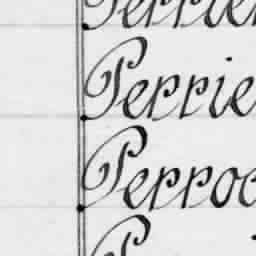 Perrie
Perrie
Perroc